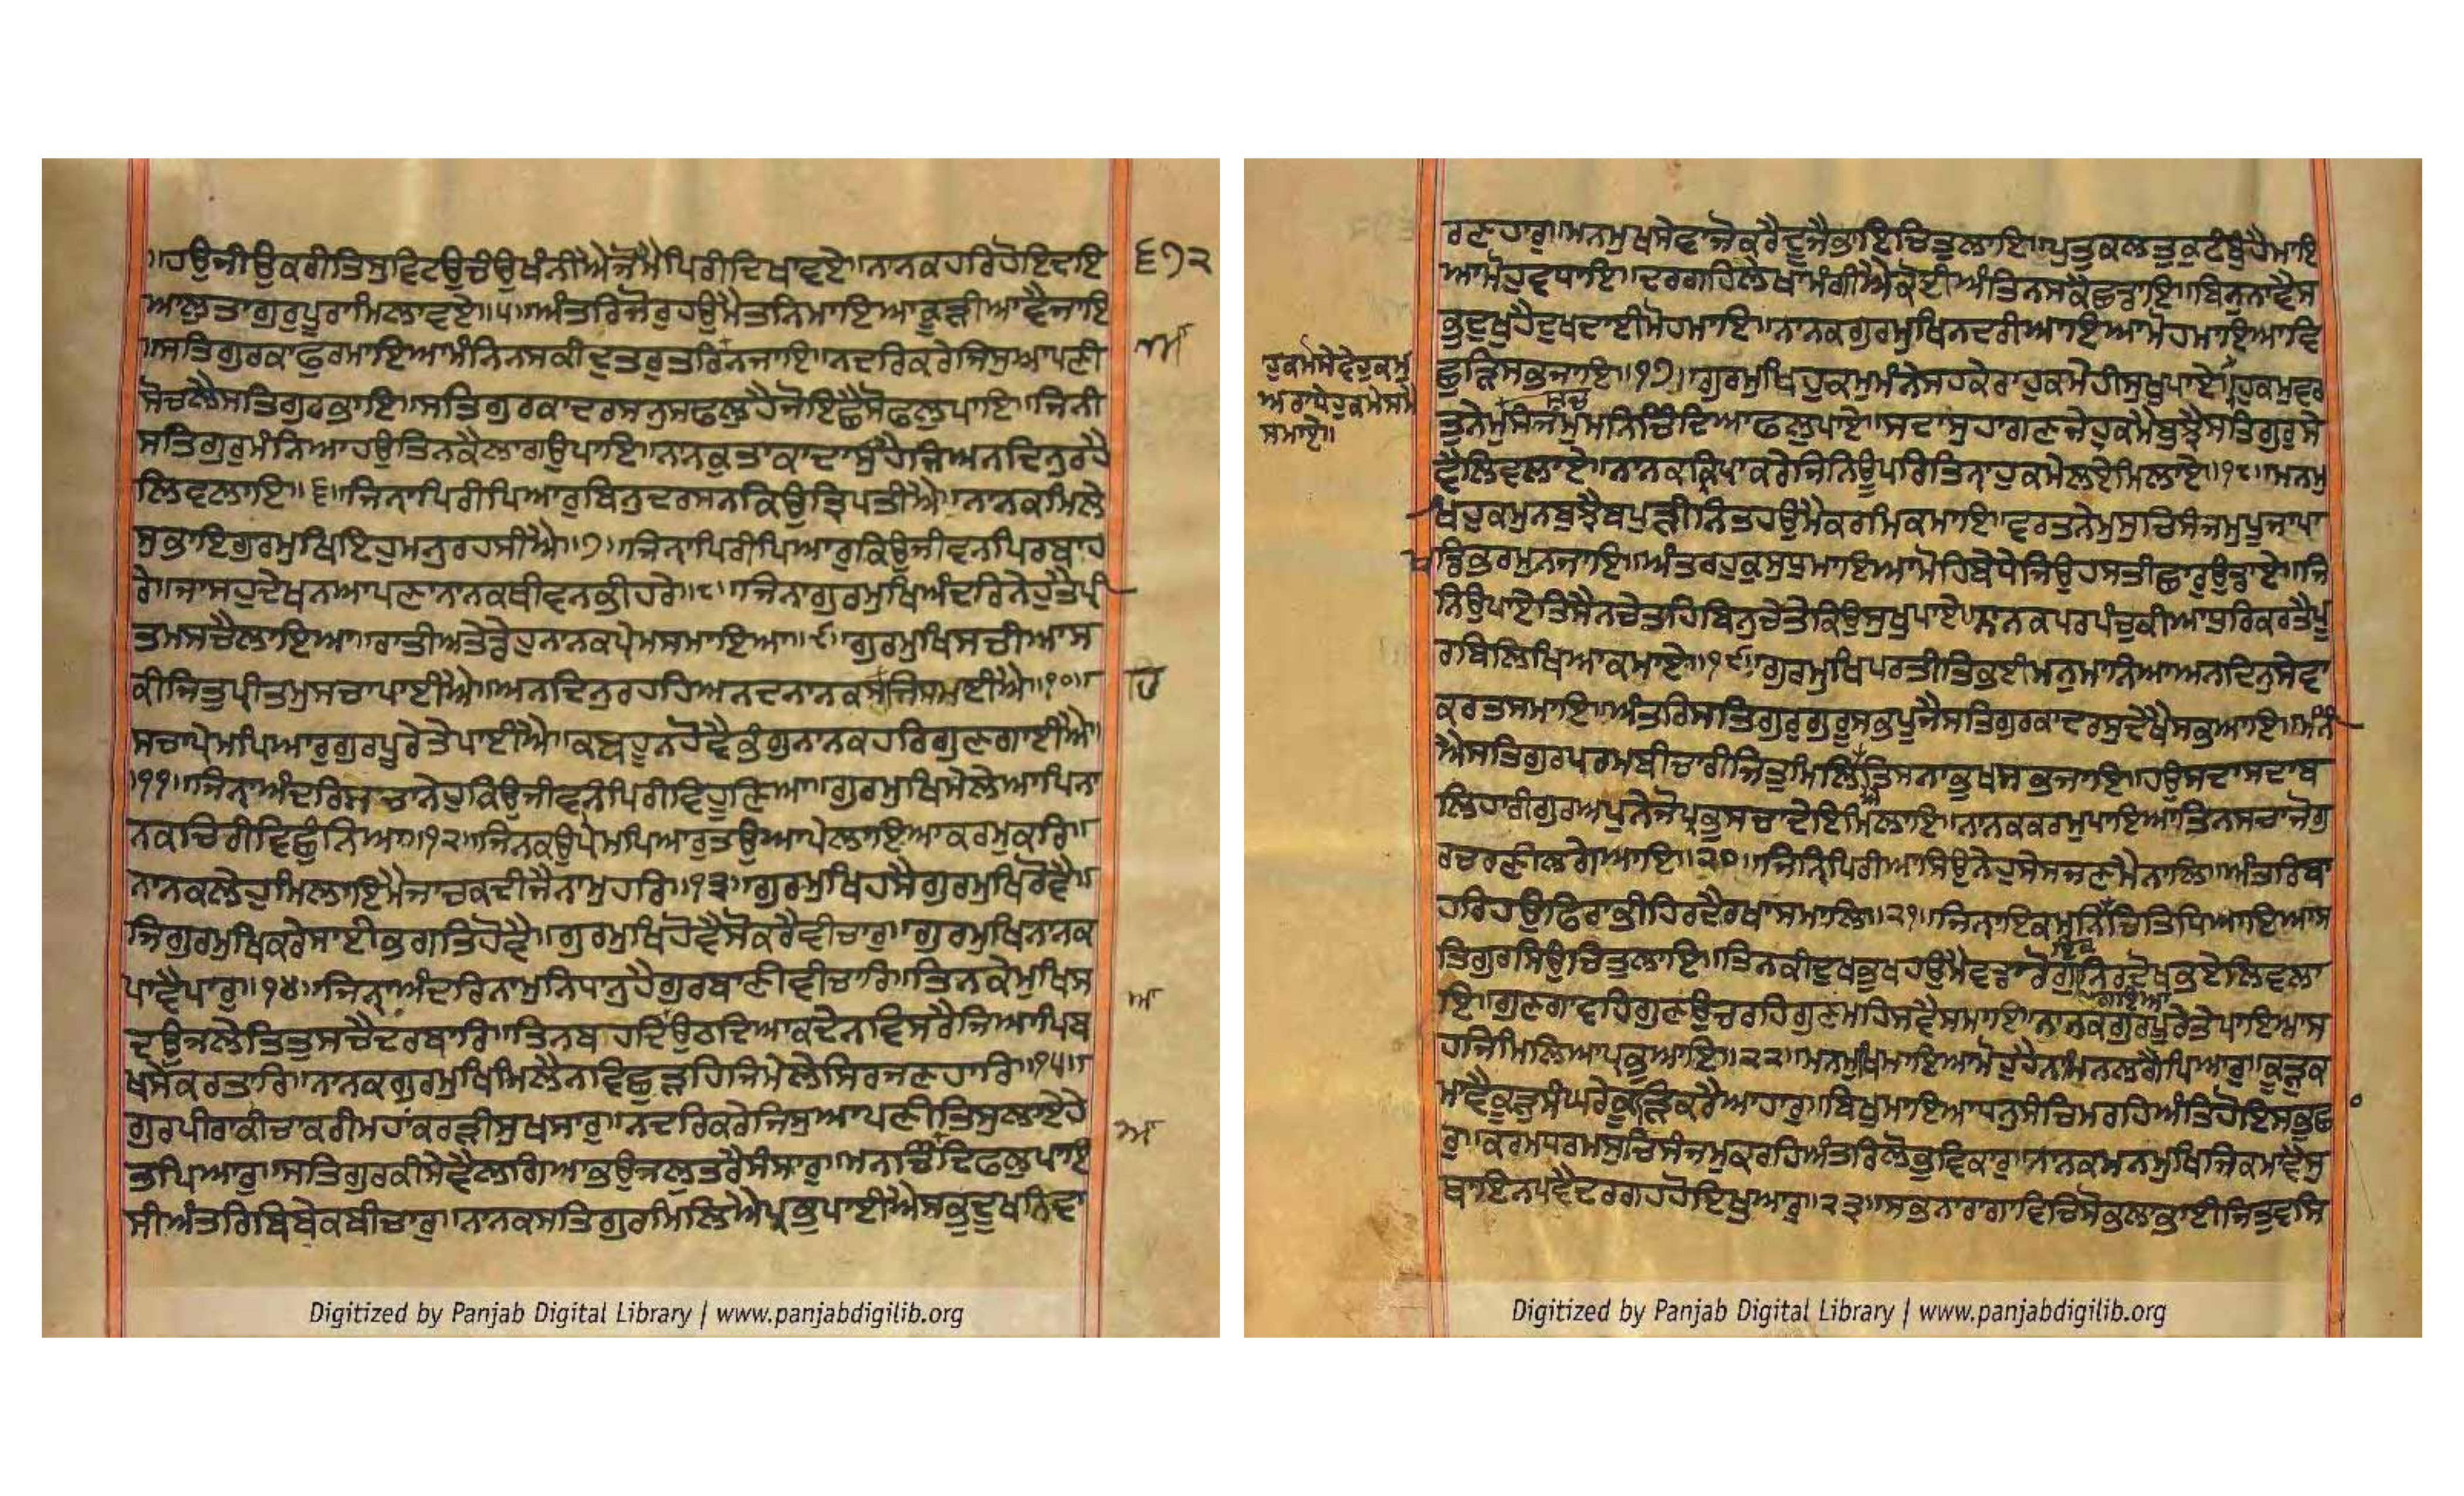 ॥ਹਉਜੀਉਕਰੀਤਿਸੁਵਿਟਉਚਉਖੰਨੀਐਜੋਮੈਪਿਰੀਦਿਖਾਵਏ॥ਨਾਨਕਹਰਿਹੋਇਦਇ
ਆਲੁਤਾਗੁਰੁਪੂਰਾਮਿਲਾਵਏ॥੫॥ਅੰਤਰਿਜੋਰੁਹਉਮੈਤਨਿਮਾਇਆਕੂੜੀਆਵੈਜਾਇ
॥ਸਤਿਗੁਰਕਾਫੁਰਮਾਇਆਮੰਨਿਨਸਕੀਦੁਤਰੁਤਰਿਨਜਾਇ॥ਨਦਰਿਕਰੇਜਿਸੁਆਪਣੀ
ਸੋਚਲੈਸਤਿਗੁਰਭਾਇ॥ਸਤਿਗੁਰਕਾਦਰਸਨੁਸਫਲੁਹੈਜੋਇਛੈਸੋਫਲੁਪਾਇ॥ਜਿਨੀ
ਸਤਿਗੁਰੁਮੰਨਿਆਹਉਤਿਨਕੈਲਾਗਉਪਾਇ॥ਨਾਨਕੁਤਾਕਾਦਾਸੁਹੈਜਿਅਨਦਿਨੁਰਹੈ
ਲਿਵਲਾਇ॥੬॥ਜਿਨਾਪਿਰੀਪਿਆਰੁਬਿਨੁਦਰਸਨਕਿਉਤ੍ਰਿਪਤੀਐ॥ਨਾਨਕਮਿਲੇ
ਸੁਭਾਇਗੁਰਮੁਖਿਇਹੁਮਨੁਰਹਸੀਐ॥੭॥ਜਿਨਾਪਿਰੀਪਿਆਰੁਕਿਉਜੀਵਨਿਪਿਰਬਾਹ
ਰੇ॥ਜਾਸਹੁਦੇਖਨਿਆਪਣਾਨਾਨਕਥੀਵਨਿਭੀਹਰੇ॥੮॥ਜਿਨਾਗੁਰਮੁਖਿਅੰਦਰਿਨੇਹੁਤੈਪ੍ਰੀ
ਤਮਸਚੈਲਾਇਆ॥ਰਾਤੀਅਤੈਡੇਹੁਨਾਨਕਪ੍ਰੇਮਸਮਾਇਆ॥੯॥ਗੁਰਮੁਖਿਸਚੀਆਸ
ਕੀਜਿਤੁਪ੍ਰੀਤਮੁਸਚਾਪਾਈਐ॥ਅਨਦਿਨੁਰਹਹਿਅਨਦਨਾਨਕਸਹਜਿਸਮਾਈਐ॥੧੦॥
ਸਚਾਪ੍ਰੇਮਪਿਆਰੁਗੁਰਪੂਰੇਤੇਪਾਈਐ॥ਕਬਹੂਨਹੋਵੈਭੰਗੁਨਾਨਕਹਰਿਗੁਣਗਾਈਐ॥
॥੧੧॥ਜਿਨਾਅੰਦਰਿਸਚਾਨੇਹੁਕਿਉਜੀਵਨਿਪਿਰੀਵਿਹੂਣਿਆ॥ਗੁਰਮੁਖਿਮੇਲੇਆਪਿਨਾ
ਨਕਚਿਰੀਵਿਛੁੰਨਿਆ॥੧੨॥ਜਿਨਕਉਪ੍ਰੇਮਪਿਆਰੁਤਉਆਪੇਲਾਇਆਕਰਮੁਕਰਿ॥
ਨਾਨਕਲੇਹੁਮਿਲਾਇਮੈਜਾਚਕਦੀਜੈਨਾਮੁਹਰਿ॥੧੩॥ਗੁਰਮੁਖਿਹਸੈਗੁਰਮੁਖਿਰੋਵੈ॥
ਜਿਗੁਰਮੁਖਿਕਰੇਸਾਈਭਗਤਿਹੋਵੈ॥ਗੁਰਮੁਖਿਹੋਵੈਸੋਕਰੈਵੀਚਾਰੁ॥ਗੁਰਮੁਖਿਨਾਨਕ
ਪਾਵੈਪਾਰੁ॥੧੪॥ਜਿਨਾਅੰਦਰਿਨਾਮੁਨਿਧਾਨੁਹੈਗੁਰਬਾਣੀਵੀਚਾਰਿ॥ਤਿਨਕੇਮੁਖਿਸ
ਦਉਜਲੇਤਿਤੁਸਚੈਦਰਬਾਰਿ॥ਤਿਨਬਹਦਿਉਠਦਿਆਕਦੇਨਵਿਸਰੈਜਿਆਪਿਬ
ਖਸੇਕਰਤਾਰਿ॥ਨਾਨਕਗੁਰਮੁਖਿਮਿਲੇਨਵਿਛੁੜਹਿਜਿਮੇਲੇਸਿਰਜਣਹਾਰਿ॥੧੫॥
ਗੁਰਪੀਰਾਕੀਚਾਕਰੀਮਹਾਂਕਰੜੀਸੁਖਸਾਰੁ॥ਨਦਰਿਕਰੇਜਿਸੁਆਪਣੀਤਿਸੁਲਾਏਹੇ
ਤਪਿਆਰੁ॥ਸਤਿਗੁਰਕੀਸੇਵੈਲਗਿਆਭਉਜਲੁਤਰੈਸੰਸਾਰੁ॥ਮਨਚਿੰਦਿਫਲੁਪਾਇ
ਸੀਅੰਤਰਿਬਿਬੇਕਬੀਚਾਰੁ॥ਨਾਨਕਸਤਿਗੁਰਮਿਲਿਐਪ੍ਰਭੁਪਾਈਐਸਭੁਦੂਖਨਿਵਾ
੬੭੨
ਰਣਹਾਰੁ॥ਮਨਮੁਖਸੇਵਾਜੋਕਰੈਦੂਜੈਭਾਇਚਿਤੁਲਾਇ॥ਪੁਤੁਕਲਤੁਕੁਟੰਬੁਹੈਮਾਇ
ਆਮੋਹੁਵਧਾਇ॥ਦਰਗਹਿਲੇਖਾਮੰਗੀਐਕੋਈਅੰਤਿਨਸਕੈਛਡਾਇ॥ਬਿਨੁਨਾਵੈਸ
ਭੁਦੁਖੁਹੈਦੁਖਦਾਈਮੋਹਮਾਇ॥ਨਾਨਕਗੁਰਮੁਖਿਨਦਰੀਆਇਆਮੋਹਮਾਇਆਵਿ
ਛੁੜਿਸਭਜਾਇ॥੧੭॥ਗੁਰਮੁਖਿਹੁਕਮੁਮੰਨੇਸਹਕੇਰਾਹੁਕਮੇਹੀਸੁਖੁਪਾਏ॥ਹੁਕਮੁਵਰ
ਹੁਕਮੋਸੇਵੇਹੁਕਮੁ
ਅਰਾਧੇਹੁਕਮੇਸਮੈ
ਸਮਾਏ॥
ਤੁਨੇਮੁਸੰਜਮੁਮਨਿਚਿੰਦਿਆਫਲੁਪਾਏ॥ਸਦਾਸੁਹਾਗਣਜੇਹੁਕਮੈਬੁਝੈਸਤਿਗੁਰੁਸੇ
ਵੈਲਿਵਲਾਏ॥ਨਾਨਕਕ੍ਰਿਪਾਕਰੇਜਿਨਿਊਪਰਿਤਿਨਾਹੁਕਮੇਲਏਮਿਲਾਏ॥੧੮॥ਮਨਮੁ
ਖਿਹੁਕਮੁਨਬੁਝੈਬਪੁੜੀਨਿਤਹਉਮੈਕਰਮਿਕਮਾਇ॥ਵਰਤਨੇਮੁਸੁਚਿਸੰਜਮੁਪੂਜਾਪਾ
ਖੰਡਿਭਰਮੁਨਜਾਇ॥ਅੰਤਰਹੁਕੁਸੁਧੁਮਾਇਆਮੋਹਿਬੇਧੇਜਿਉਹਸਤੀਛਾਰੁਉਡਾਏ॥ਜਿ
ਨਿਉਪਾਏਤਿਸੈਨਚੇਤਹਿਬਿਨੁਚੇਤੇਕਿਉਸੁਖੁਪਾਏ॥ਨਾਨਕਪਰਪੰਚੁਕੀਆਧੁਰਿਕਰਤੈਪੂ
ਰਬਿਲਿਖਿਆਕਮਾਏ॥੧੯॥ਗੁਰਮੁਖਿਪਰਤੀਤਿਭਈਮਨੁਮਾਨਿਆਅਨਦਿਨੁਸੇਵਾ
ਕਰਤਸਮਾਇ॥ਅੰਤਰਿਸਤਿਗੁਰੁਗੁਰੂਸਭਪੂਜੇਸਤਿਗੁਰਕਾਦਰਸੁਦੇਖੈਸਭਆਇ॥ਮੰਨੀ
ਐਸਤਿਗੁਰਪਰਮਬੀਚਾਰੀਜਿਤੁਮਿਲਿਐਤਿਸਨਾਭੁਖਸਭਜਾਇ॥ਹਉਸਦਾਸਦਾਬ
ਲਿਹਾਰੀਗੁਰਅਪੁਨੇਜੋਪ੍ਰਭੁਸਚਾਦੇਇਮਿਲਾਇ॥ਨਾਨਕਕਰਮੁਪਾਇਆਤਿਨਸਚਾਜੋਗੁ
ਰਚਰਣੀਲਗੇਆਇ॥੨੦॥ਜਿਨਿਪਿਰੀਆਸਿਉਨੇਹੁਸੇਸਜਣਮੈਨਾਲਿ॥ਅੰਤਰਿਬਾ
ਹਰਿਹਉਫਿਰਾਭੀਹਿਰਦੈਰਖਾਸਮਾਲਿ॥੨੧॥ਜਿਨਾਇਕਮਨਿਇਕਚਿਤਿਧਿਆਇਆਸ
ਤਿਗੁਰਸਿਉਚਿਤੁਲਾਇ॥ਤਿਨਕੀਦੁਖਭੁਖਹਉਮੈਵਡਾਰੋਗੁਗਇਆਨਿਰਦੋਖਭਏਲਿਵਲਾ
ਇ॥ਗੁਣਗਾਵਹਿਗੁਣਉਚਰਹਿਗੁਣਮਹਿਸਵੈਸਮਾਇ॥ਨਾਨਕਗੁਰਪੂਰੇਤੇਪਾਇਆਸ
ਹਜਿਮਿਲਿਆਪ੍ਰਭੁਆਇ॥੨੨॥ਮਨਮੁਖਿਮਾਇਆਮੋਹੁਹੈਨਾਮਿਨਲਗੈਪਿਆਰੁ॥ਕੂੜੁਕ
ਮਾਵੈਕੂੜੁਸੰਘਰੈਕੂੜਿਕਰੈਆਹਾਰੁ॥ਬਿਖੁਮਾਇਆਧਨੁਸੰਚਿਮਰਹਿਅੰਤਿਹੋਇਸਭੁਛਾ
ਰੁ॥ਕਰਮਧਰਮਸੁਚਿਸੰਜਮੁਕਰਹਿਅੰਤਰਿਲੋਭੁਵਿਕਾਰੁ॥ਨਾਨਕਮਨਮੁਖਿਜਿਕਮਾਵੈਸੁ
ਥਾਇਨਪਵੈਦਰਗਹਹੋਇਖੁਆਰੁ॥੨੩॥ਸਭਨਾਰਾਗਾਵਿਚਿਸੋਭਲਾਭਾਈਜਿਤੁਵਸਿ
Digitized by Panjab Digital Library | www.panjabdigilib.org
Digitized by Panjab Digital Library | www.panjabdigilib.org